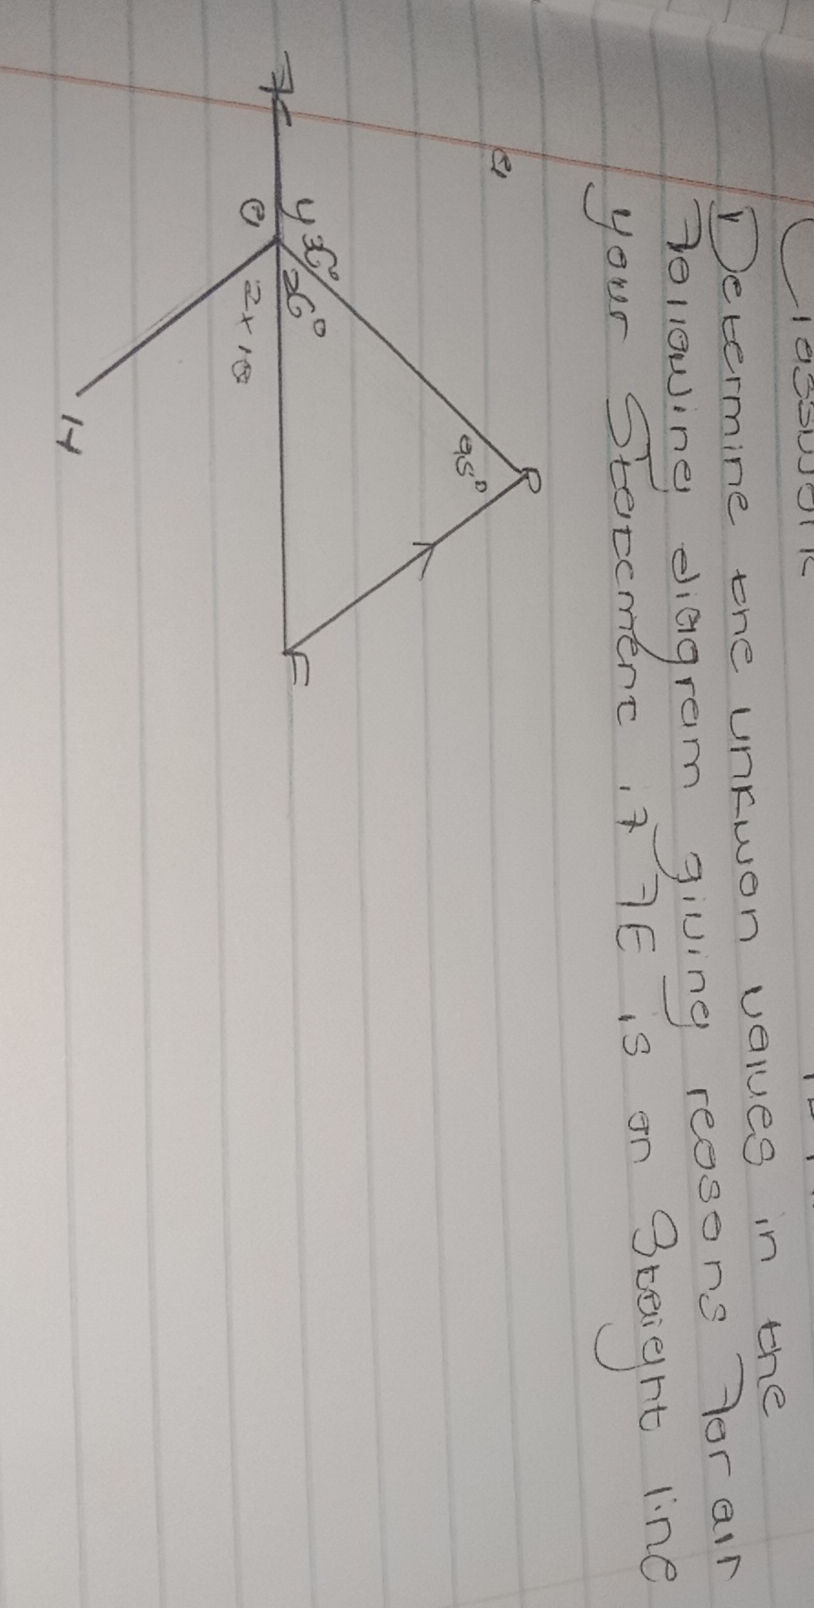 Classwork
Determine the unkwon values in the
following diagram giving reasons for all
your Statement if FE is an Straight line
a
P
95°
y 36°
26°
O
2x10
F
H